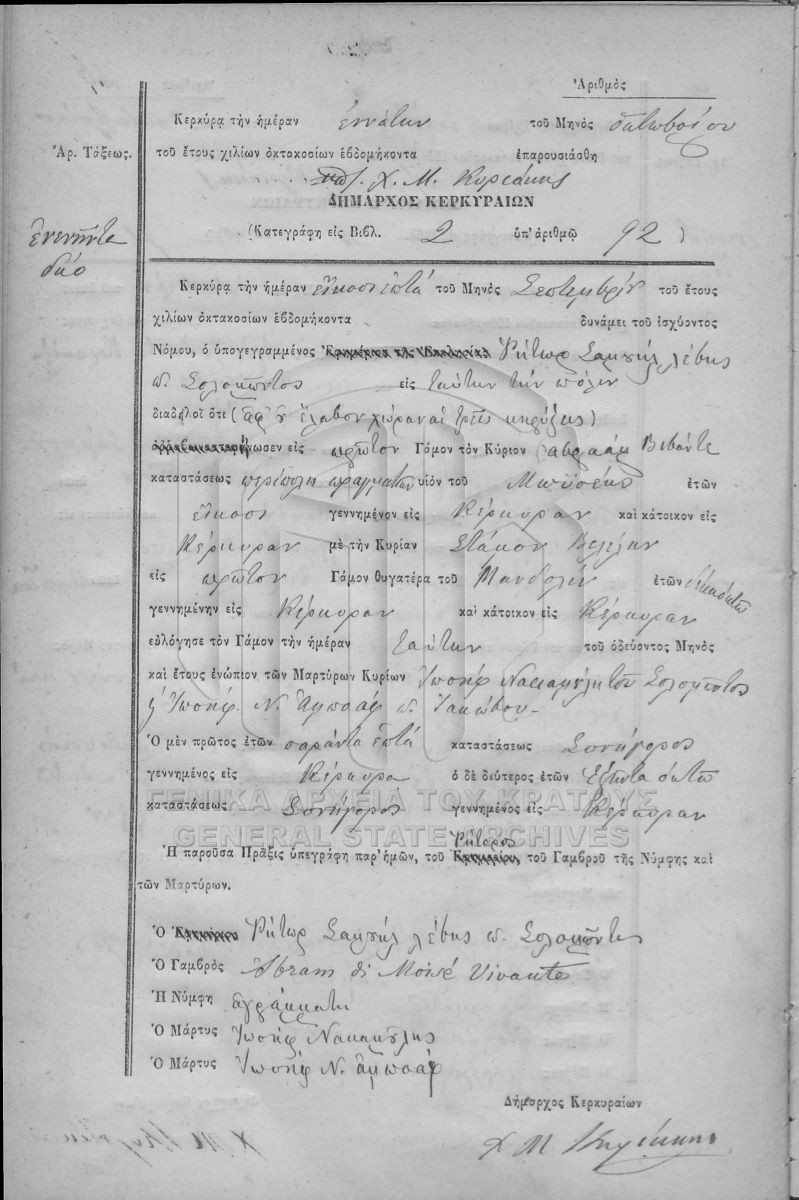 Ἀριθμὸς
Κερκύρα τὴν ἡμέραν ἐννάτην τοῦ Μηνὸς ὀκτωβρίου
Ἀρ. Τάξεως. τοῦ ἔτους χιλίων ὀκτακοσίων ἑβδομήκοντα ἐπαρουσιάσθη
Χ. Μ. Κυριάκης
ΔΗΜΑΡΧΟΣ ΚΕΡΚΥΡΑΙΩΝ
ἐνενῆντα
δύο
(Κατεγράφη εἰς Βιβλ. 2 ὑπ' ἀριθμῷ 92)
Κερκύρᾳ τὴν ἡμέραν εἴκοσι ἑπτά τοῦ Μηνὸς Σεπτεμβρίου τοῦ ἔτους
χιλίων ὀκτακοσίων ἑβδομήκοντα δυνάμει τοῦ ἰσχύοντος
Νόμου, ὁ ὑπογεγραμμένος Ῥήτωρ Σαμουήλ Λέβης
π. Σολομῶντος εἰς ταύτην τὴν πόλιν
διαδηλοῖ ὅτι (ἀφ' οὗ ἔλαβον χώραν αἱ τρεῖς κηρύξεις)
ωσεν εἰς πρῶτον Γάμον τὸν Κύριον ἀβραάμ Βιβάντε
καταστάσεως πραγματευ υἱὸν τοῦ Μωϋσέως ἐτῶν
εἴκοσι γεννημένον εἰς Κέρκυραν καὶ κάτοικον εἰς
Κέρκυραν μὲ τὴν Κυρίαν Στάμον Βελέλην
εἰς πρῶτον Γάμον θυγατέρα τοῦ Μανδολίν ἐτῶν δεκαοκτώ
γεννημένην εἰς Κέρκυραν καὶ κάτοικον εἰς Κέρκυραν
εὐλόγησε τὸν Γάμον τὴν ἡμέραν ταύτην τοῦ ὁδεύοντος Μηνὸς
καὶ ἔτους ἐνώπιον τῶν Μαρτύρων Κυρίων Ἰωσήφ Νακαμούλη τοῦ Σολομῶντος
Ἰωσήφ Ν. π. Ἰακώβου
Ὁ μὲν πρῶτος ἐτῶν σαράντα ἑπτά καταστάσεως Συνήγορος
γεννημένος εἰς Κέρκυρα ὁ δὲ δεύτερος ἐτῶν ἑξῆντα ὀκτώ
καταστάσεως Συνήγορος γεννημένος εἰς Κέρκυραν
ΓΕΝΙΚΑ ΑΡΧΕΙΑ ΤΟΥ ΚΡΑΤΟΥΣ
GENERAL STATE ARCHIVES
Ῥήτορος
Ἡ παροῦσα Πρᾶξις ὑπεγράφη παρ' ἡμῶν, τοῦ τοῦ Γαμβροῦ τῆς Νύμφης καὶ
τῶν Μαρτύρων.
Ὁ Ῥήτωρ Σαμουήλ Λέβης π. Σολομῶντος
Ὁ Γαμβρὸς Abram di Moisé Vivante
Ἡ Νύμφη ἀγράμματη
Ὁ Μάρτυς Ἰωσήφ Νακαμούλης
Ὁ Μάρτυς Ἰωσήφ Ν.
Δήμαρχος Κερκυραίων
Χ Μ Κυριάκης